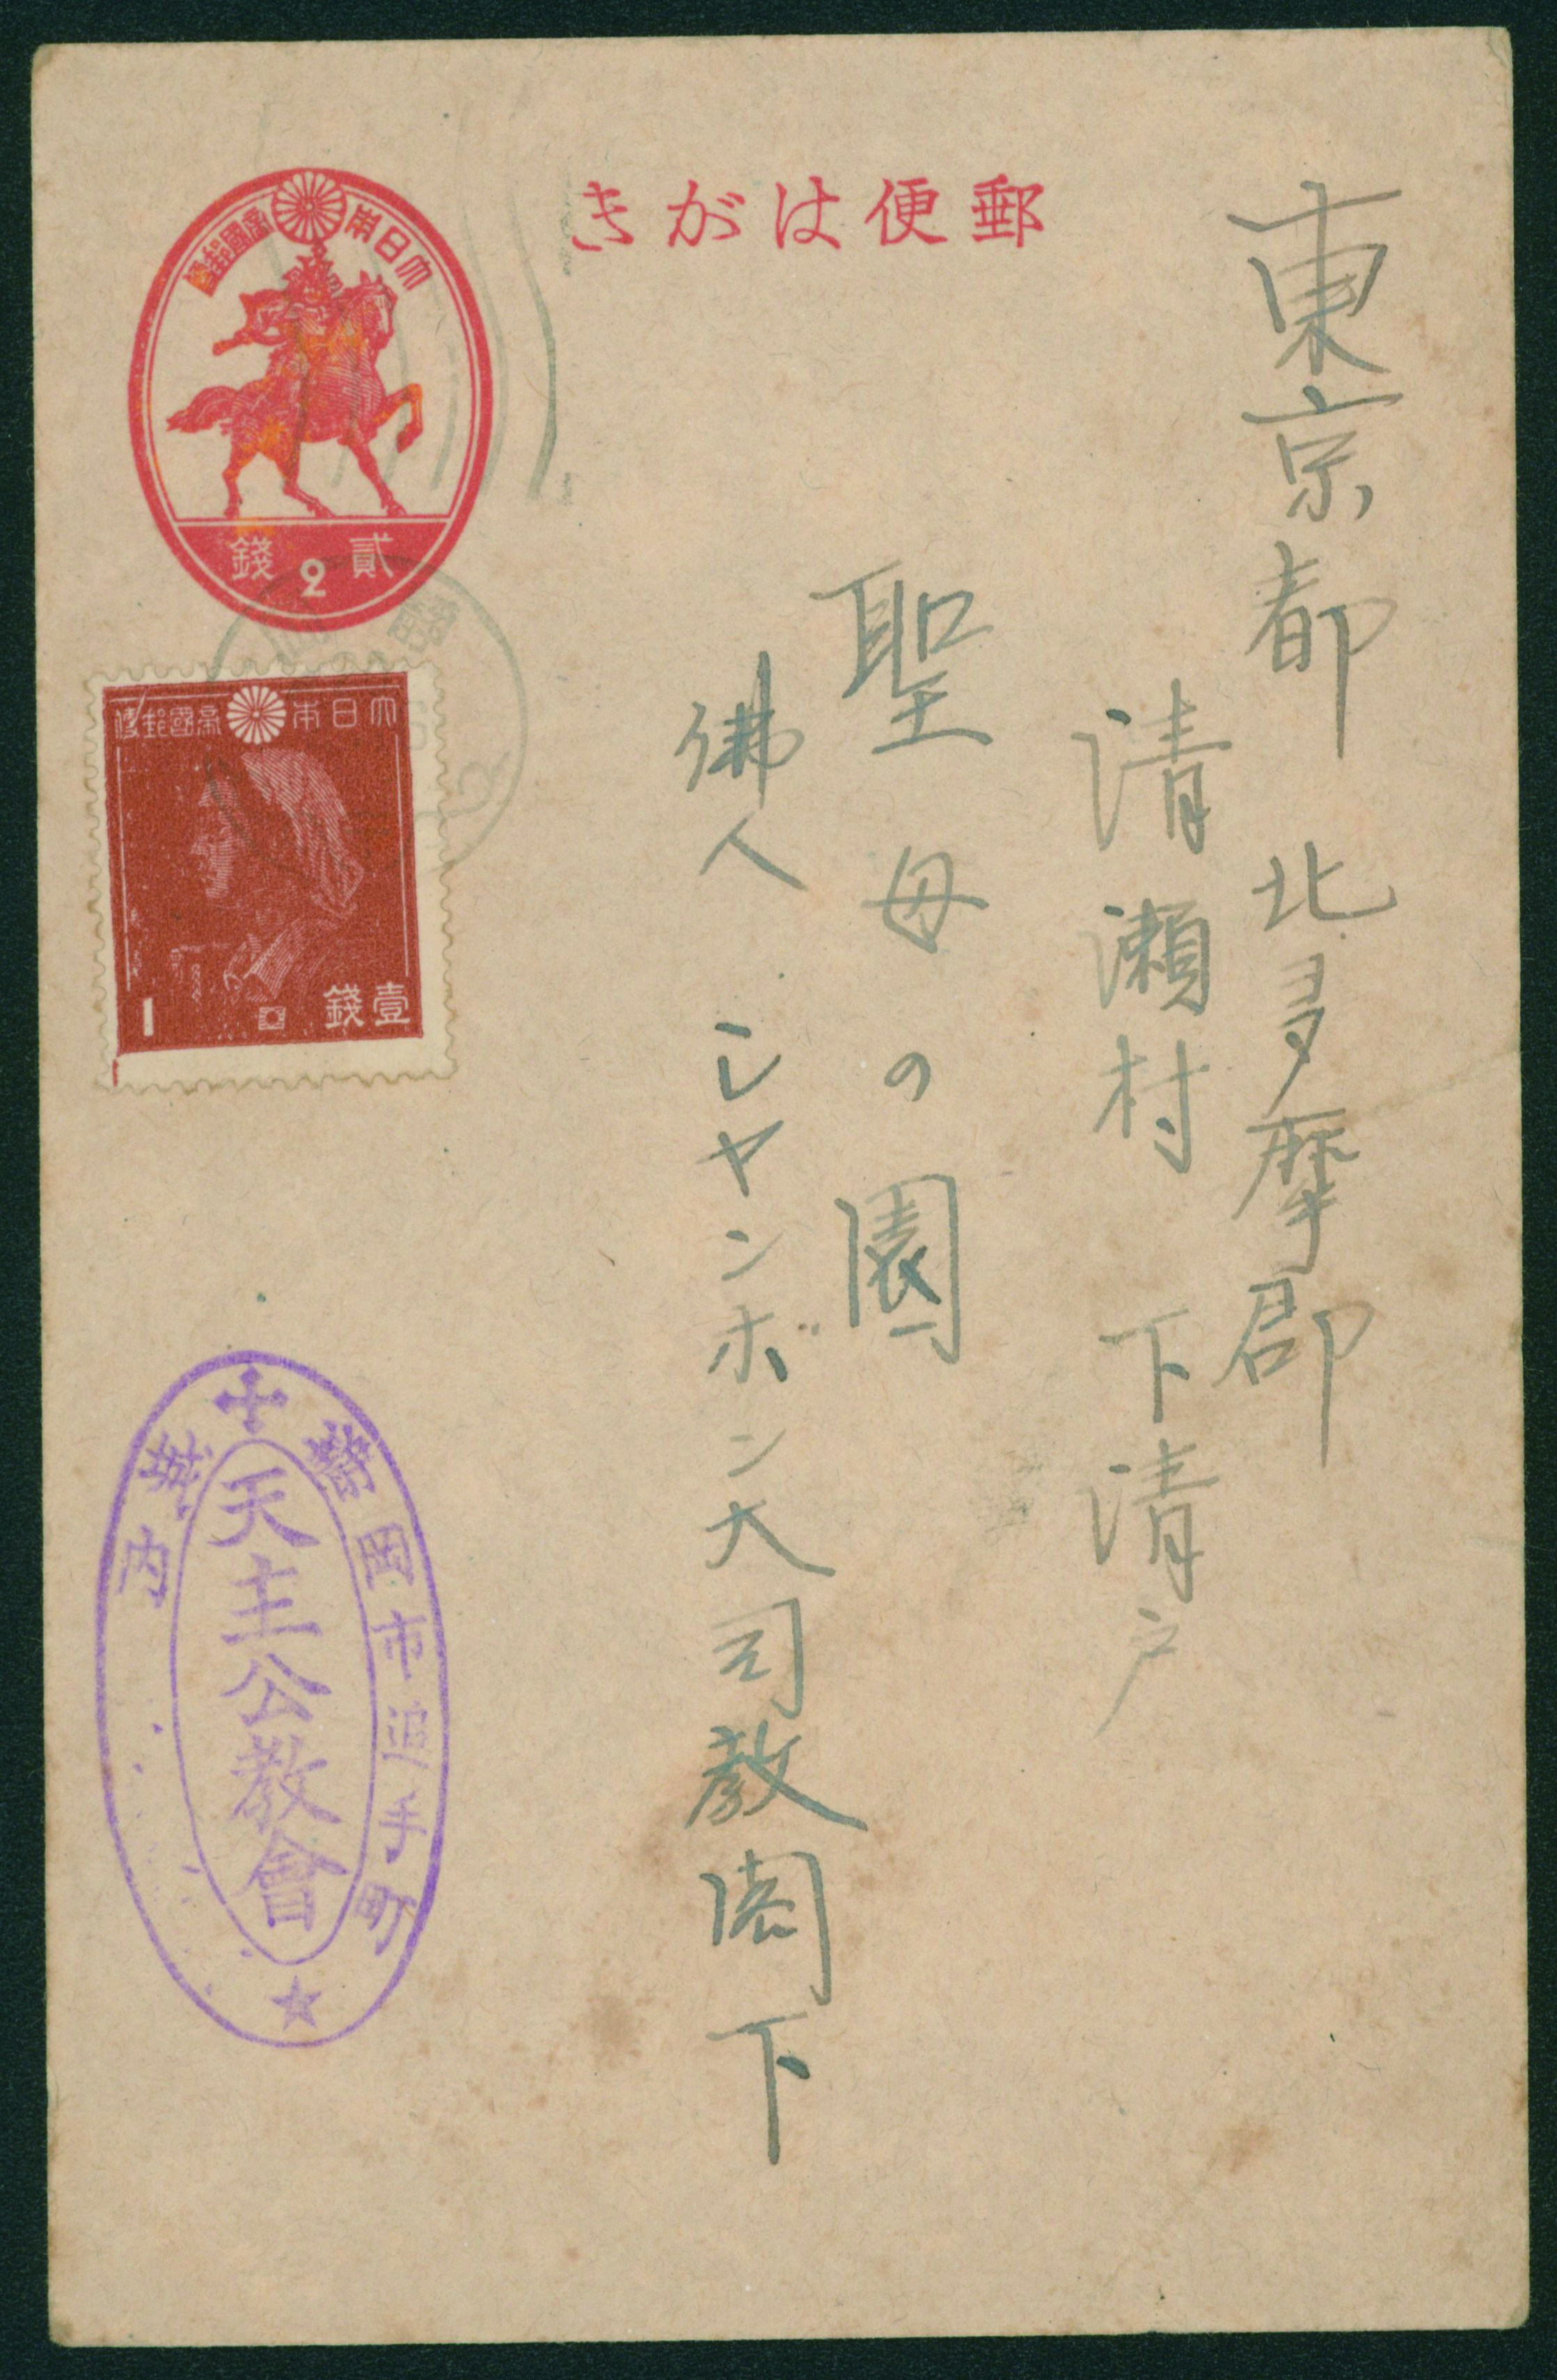 郵便はがき
東京都 北多摩郡
清瀬村 下清戸
聖母の園
佛人 シャンボン大司教閣下
大日本帝國郵便
貳錢
2
大日本帝國郵便
壹錢
1
岡市追手町
城内
天主公教會